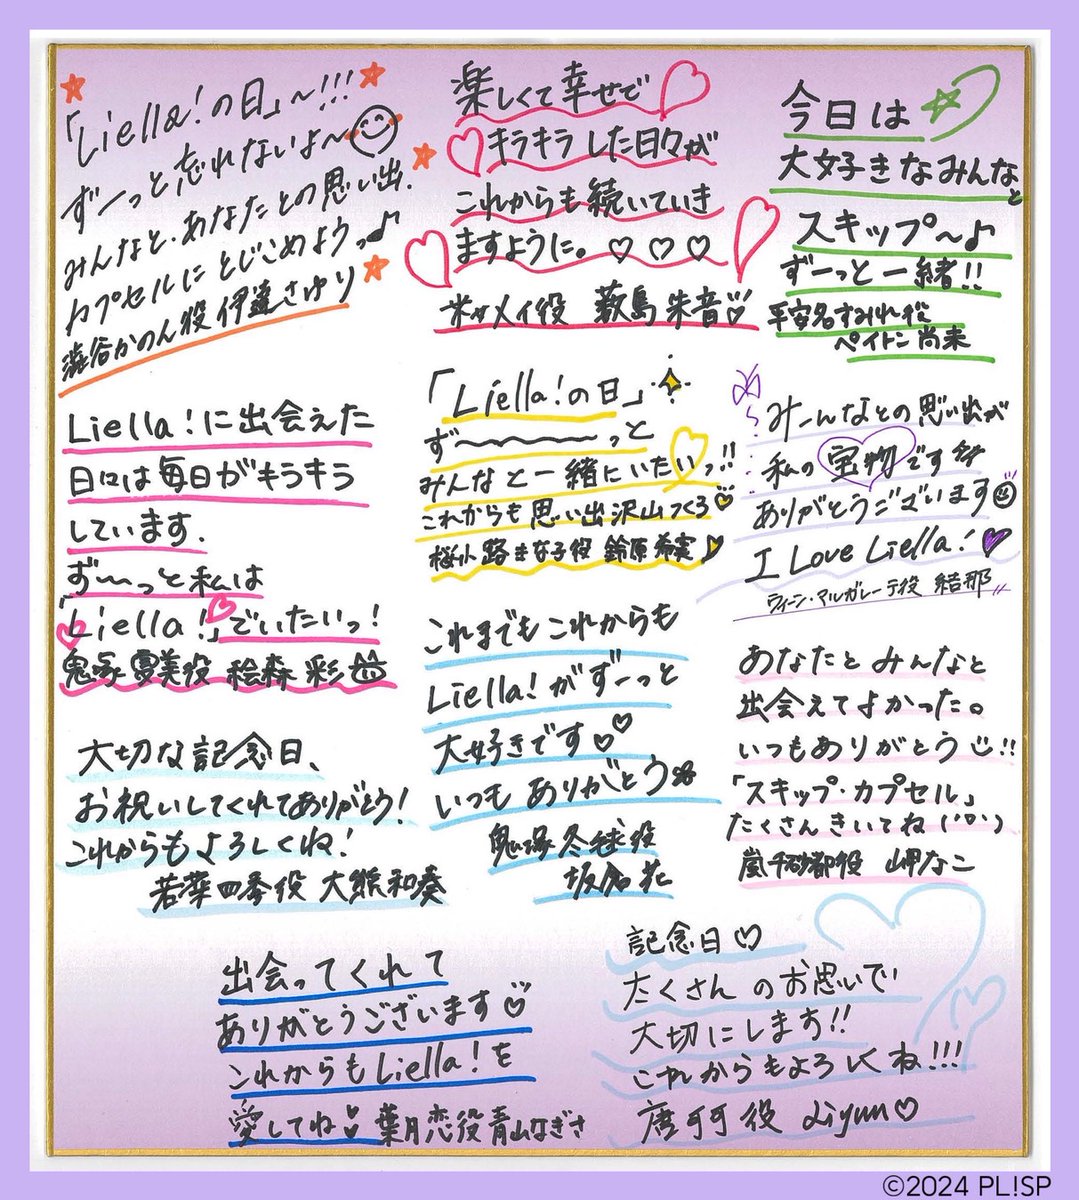 「Liella!の日」〜!!!
ずーっと忘れないよ〜
みんなと・あなたとの思い出、
カプセルにとじこめようっ♪
澁谷かのん役 伊達さゆり
楽しくて幸せで
キラキラした日々が
これからも続いていき
ますように。♡♡♡
米女メイ役 薮島朱音
今日は
大好きなみんなと
スキップ〜♪
ずーっと一緒!!
平安名すみれ役
ペイトン尚未
Liella!に出会えた
日々は毎日がキラキラ
しています.
ず〜っと私は
「Liella!」でいたいっ!
鬼塚夏美役 絵森彩
「Liella!の日」
ず〜〜っと
みんなと一緒にいたいっ!!
これからも思い出沢山つくろ♡
桜小路きな子役 鈴原希実
みーんなとの思い出が
私の宝物です
ありがとうございます
I Love Liella!
ウィーン・マルガレーテ役 結那
大切な記念日、
お祝いしてくれてありがとう!
これからもよろしくね!
若菜四季役 大熊和奏
これまでもこれからも
Liella!がずーっと
大好きです♡♡
いつもありがとう
鬼塚冬毬役
坂倉花
あなたとみんなと
出会えてよかった。
いつもありがとう!!
「スキップ・カプセル」
たくさんきいてね('ロ')
嵐千砂都役 岬なこ
出会ってくれて
ありがとうございます
これからもLiella!を
愛してね 葉月恋役 青山なぎさ
記念日♡
たくさんのお思いで
大切にします!!
これからもよろしくね!!!
唐可可役 Liyuu♡
©2024 PL!SP